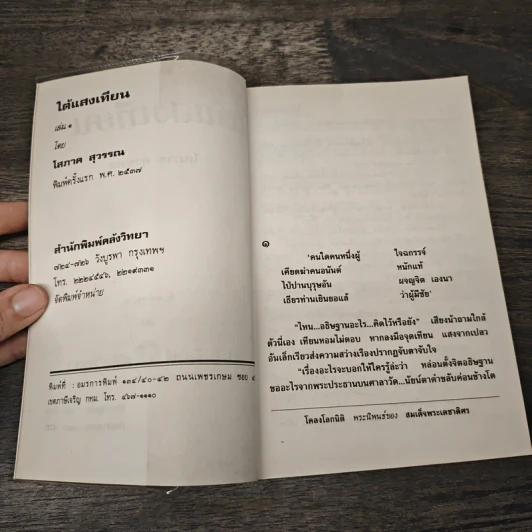 ใต้แสงเทียน
เล่ม ๑
โดย
โสภาค สุวรรณ
พิมพ์ครั้งแรก พ.ศ. ๒๕๓๗
สำนักพิมพ์คลังวิทยา
๗๒๔-๗๒๖ วังบูรพา กรุงเทพฯ
โทร. ๒๒๒๔๕๔๖, ๒๒๑๙๓๓๑
จัดพิมพ์จำหน่าย
พิมพ์ที่ : อมรการพิมพ์ ๑๓๔/๔๐-๔๒ ถนนเพชรเกษม ซอย
เขตภาษีเจริญ กทม. โทร. ๔๖๗-๑๑๑๐
๑
'คนใดคนหนึ่งผู้ ใจฉกรรจ์
เคียดฆ่าคนอนันต์ หนักแท้
ไป่ปานบุรุษอัน ผจญจิต เองนา
เธียรท่านเยินยอแล้ ว่าผู้มีชัย'
"ไหน...อธิษฐานอะไร...คิดไว้หรือยัง" เสียงน้าถามใกล้
ตัวนี่เอง เทียนหอมไม่ตอบ หากลงมือจุดเทียน แสงจากเปลว
อันเล็กเรียวส่งความสว่างเรืองปรากฏจับตาจับใจ
"เรื่องอะไรจะบอกให้ใครรู้ล่ะว่า หล่อนตั้งจิตอธิษฐาน
ขออะไรจากพระประธานบนศาลาวัด...นัยน์ตาดำขลับค่อนข้างโต
โคลงโลกนิติ พระนิพนธ์ของ สมเด็จพระเดชาดิศร